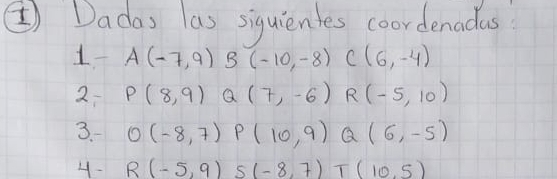 ① Dadas las siguientes coordenadas:
1.- A(-7,9) B(-10,-8) C(6,-4)
2.- P(8,9) Q(7,-6) R(-5,10)
3.- O(-8,7) P(10,9) Q(6,-5)
4.- R(-5,9) S(-8,7) T(10,5)